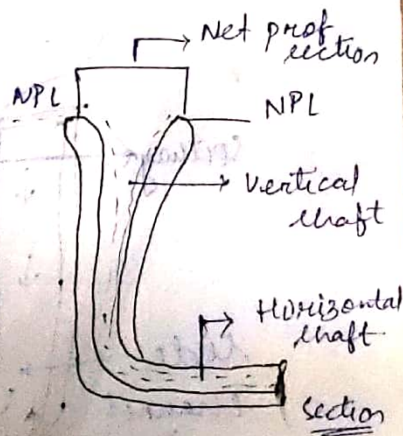 Net prof
section
NPL
NPL
Vertical
shaft
Horizontal
shaft
Section